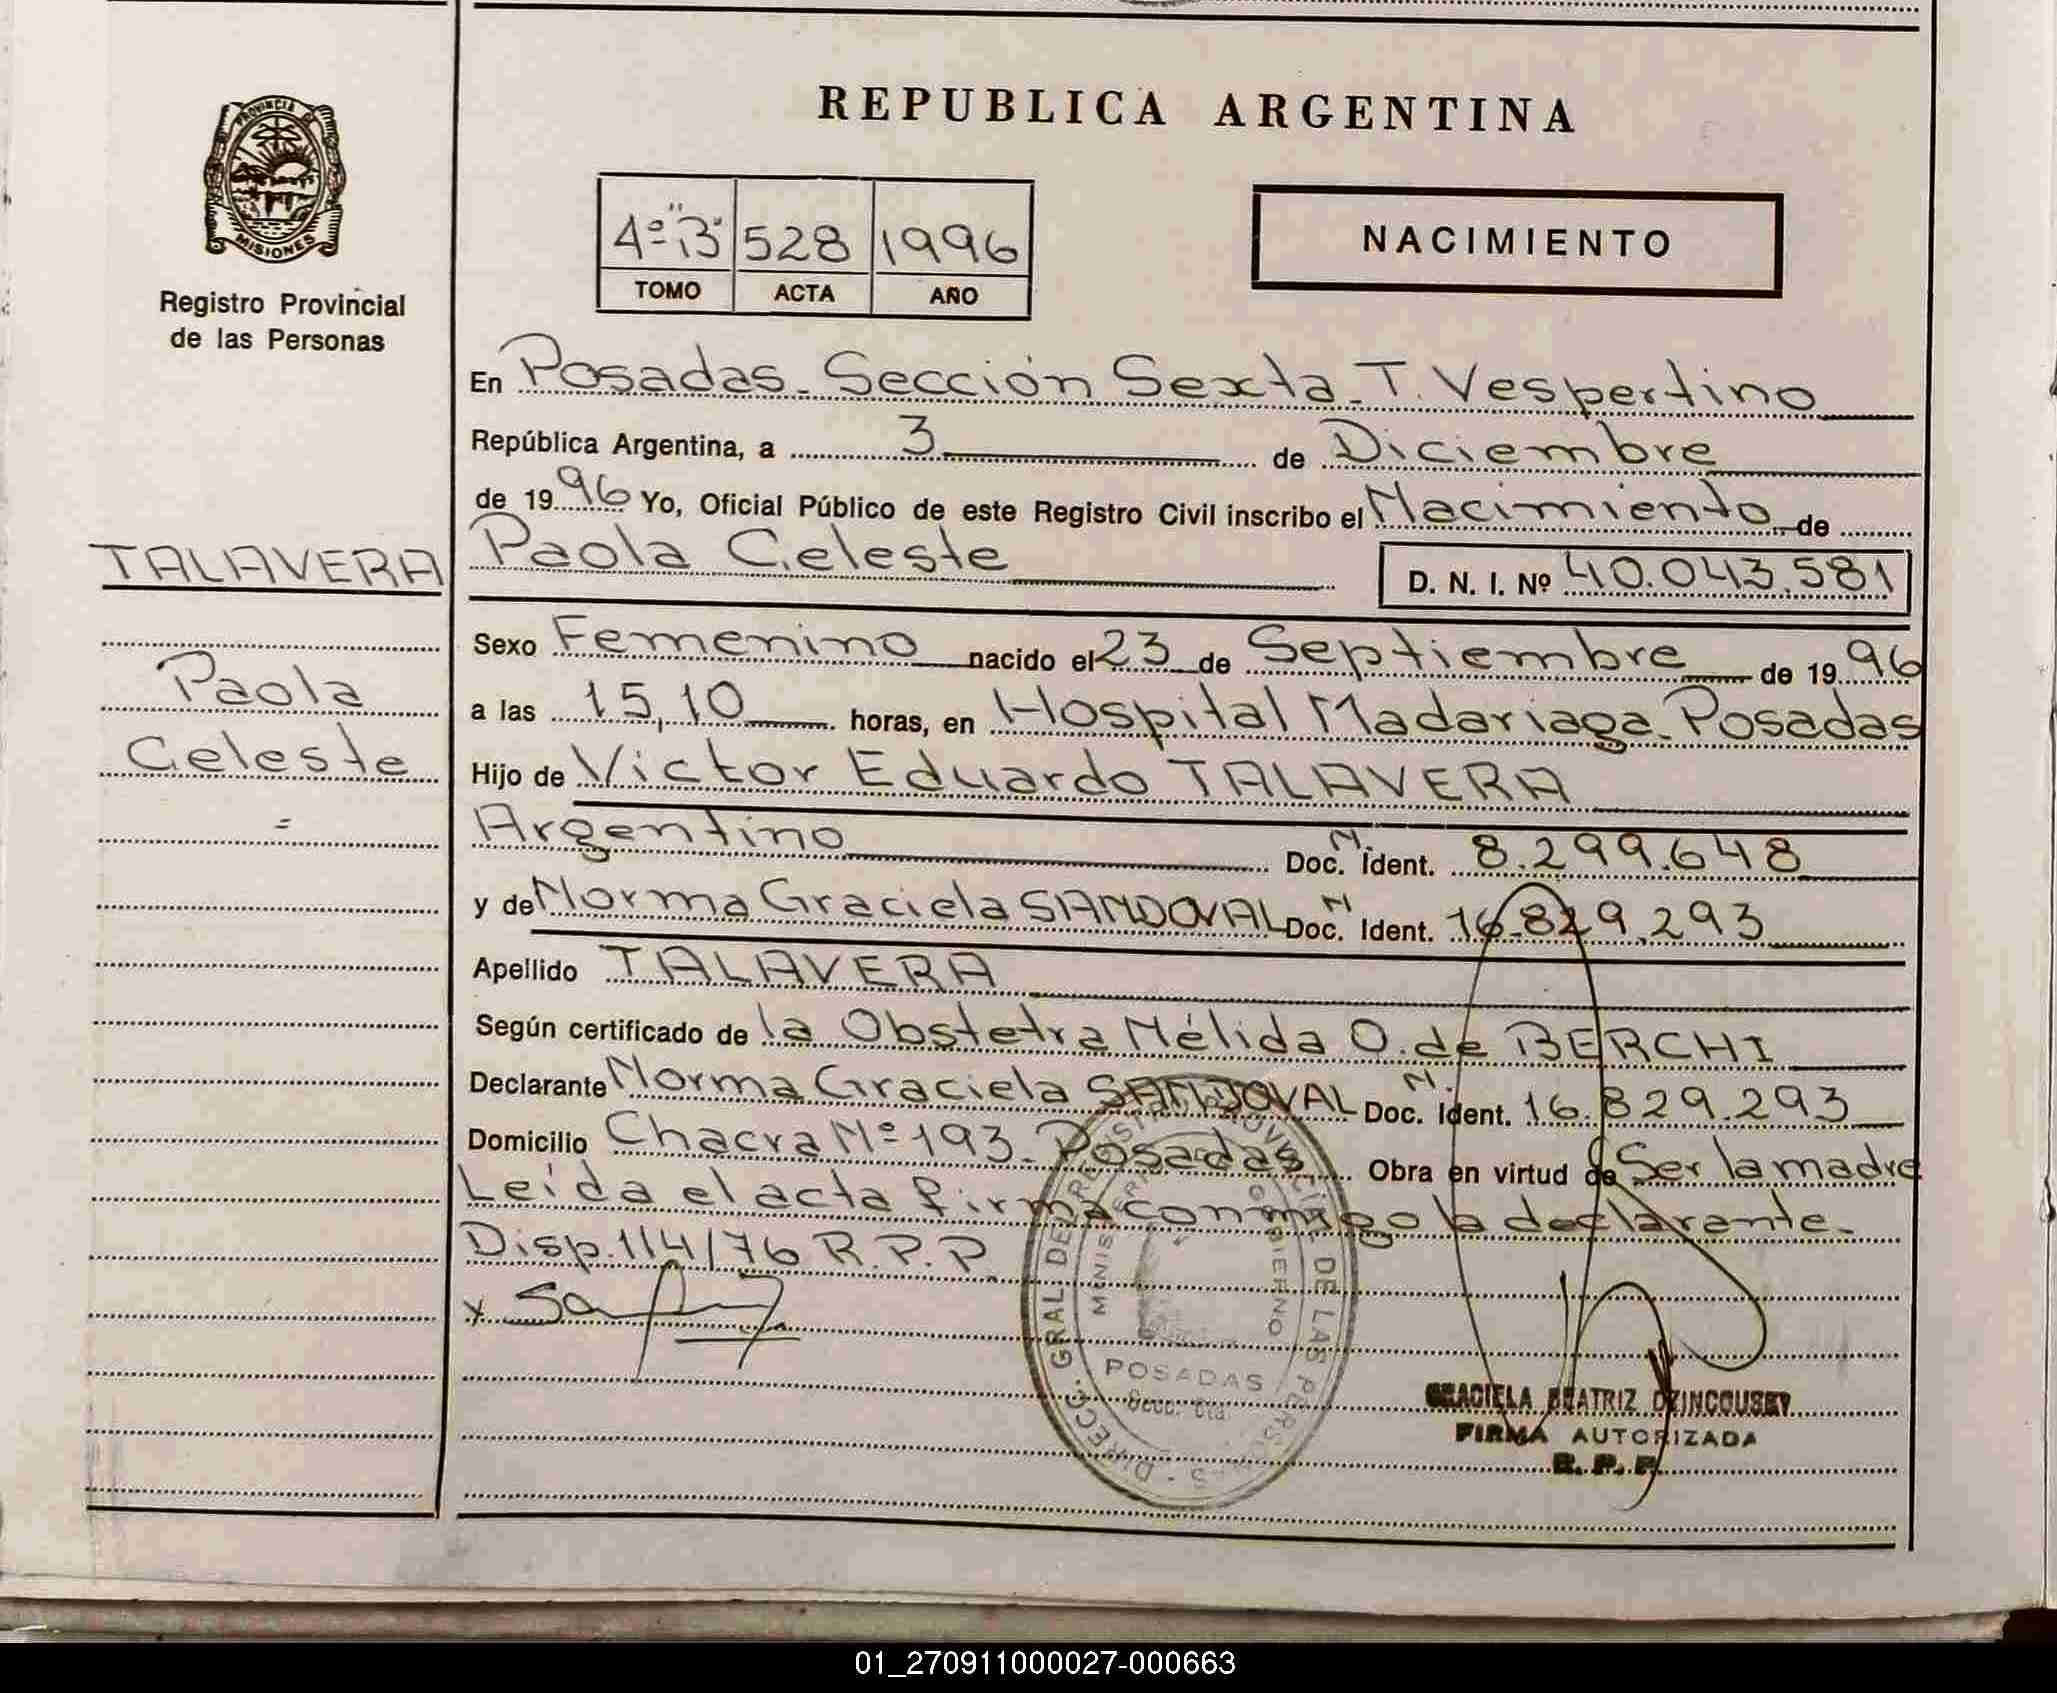 REPUBLICA ARGENTINA
PROVINCIA DE
MISIONES
Registro Provincial
de las Personas
4º "B" 528 1996
TOMO ACTA AÑO
NACIMIENTO
En Posadas - Sección Sexta - T. Vespertino
República Argentina, a 3 de Diciembre
de 1996 Yo, Oficial Público de este Registro Civil inscribo el Nacimiento de
TALAVERA
Paola Celeste D. N. I. Nº 40.043.581
Sexo Femenino nacido el 23 de Septiembre de 1996
Paola
a las 15,10 horas, en Hospital Madariaga - Posadas
Celeste
Hijo de Victor Eduardo TALAVERA
=
Argentino Doc. N. Ident. 8.299.648
y de Norma Graciela SANDOVAL Doc. N Ident. 16.829.293
Apellido TALAVERA
Según certificado de la Obstetra Nélida O. de BERCHI
Declarante Norma Graciela SANDOVAL Doc. N. Ident. 16.829.293
Domicilio Chacra Nº 193 - Posadas Obra en virtud de Ser la madre
Leída el acta firma conmigo la declarante.
Disp. 114/76 R.P.P.
x
DIRECC. GRAL DE REGISTRO PROVINCIAL DE LAS PERSONAS
MINISTERIO GOBIERNO
POSADAS
Secc. 6ta.
GRACIELA BEATRIZ
FIRMA AUTORIZADA
R. P. P.
01_270911000027-000663